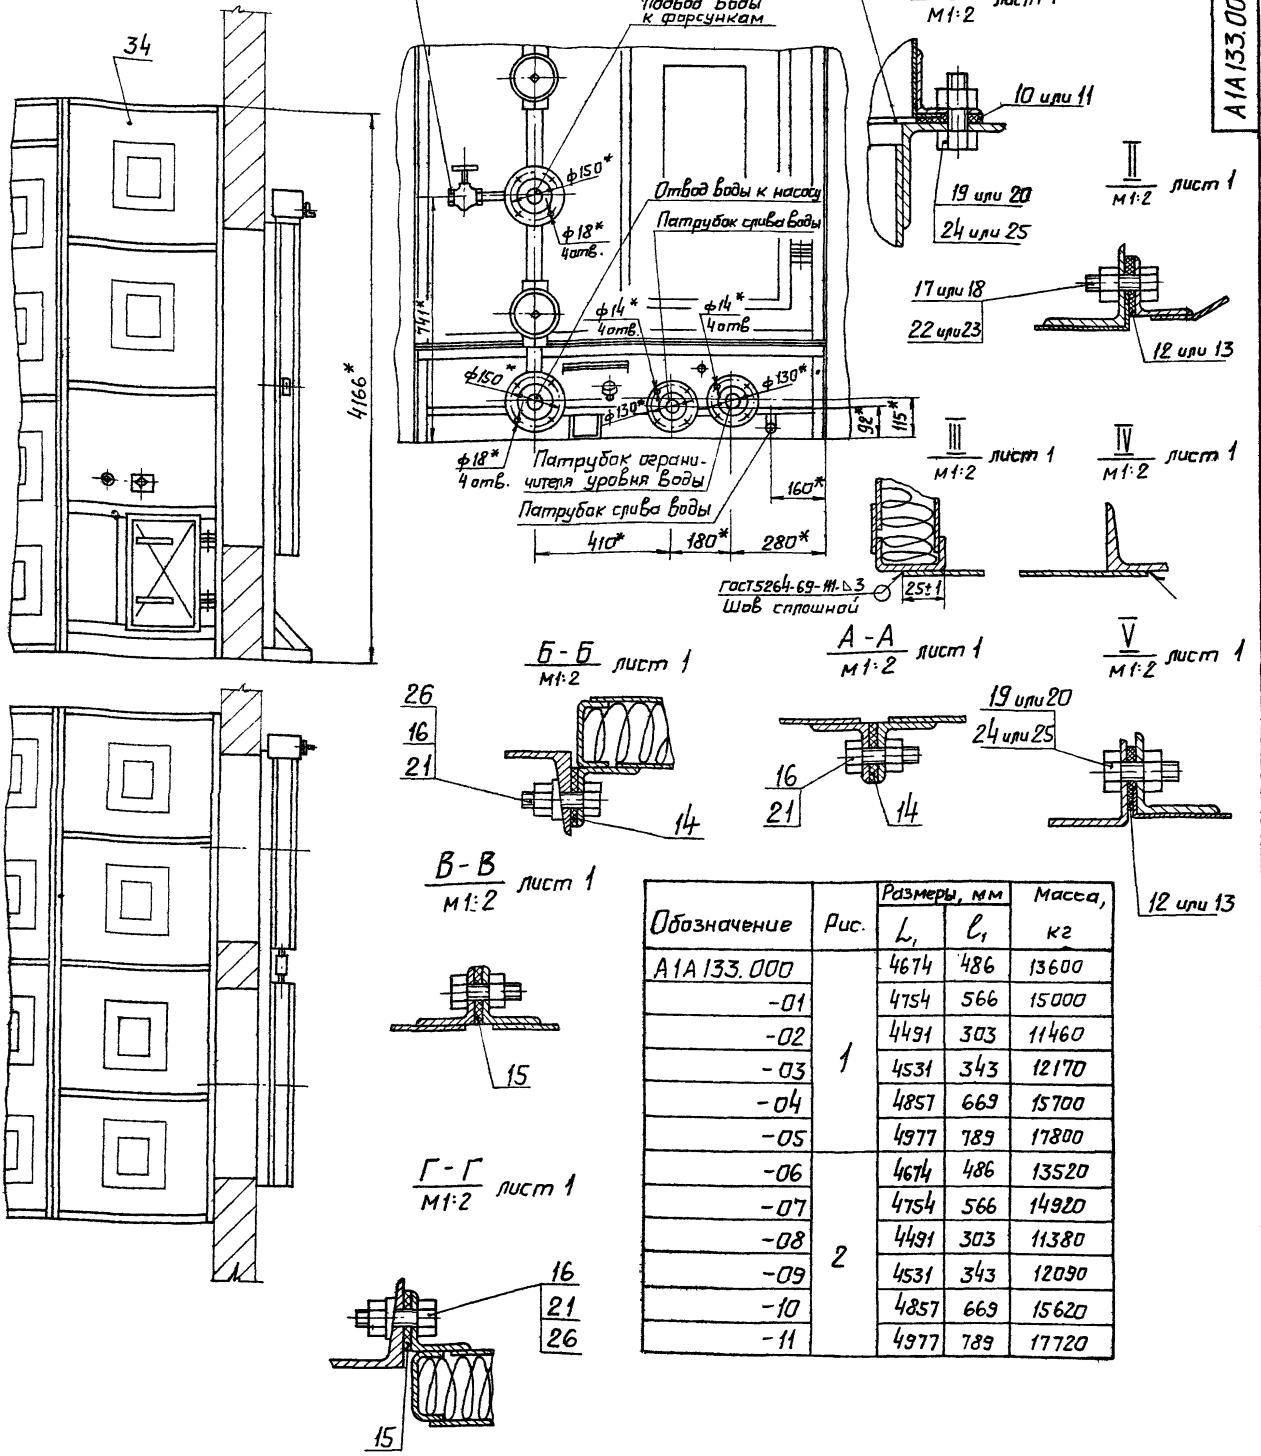 Подвод воды
к форсункам
М1:2
лист 1
А1А133.00
34
10 или 11
19 или 20
24 или 25
II
М1:2 лист 1
17 или 18
22 или 23
12 или 13
ϕ150*
ϕ18*
4 отв.
Отвод воды к насосу
Патрубок слива воды
741*
ϕ14*
4 отв.
ϕ14*
4 отв
ϕ150*
ϕ130*
ϕ130*
92*
115*
4166*
ϕ18*
4 отв.
Патрубок ограни-
чителя уровня воды
Патрубок слива воды
160*
410*
180*
280*
III
М1:2 лист 1
IV
М1:2 лист 1
ГОСТ5264-69-Н1-⊿3
Шов сплошной
25±1
Б-Б
М1:2 лист 1
А-А
М1:2 лист 1
V
М1:2 лист 1
26
16
21
14
16
21
14
19 или 20
24 или 25
12 или 13
В-В
М1:2 лист 1
15
Г-Г
М1:2 лист 1
16
21
26
15
Обозначение Рис. Размеры, мм Масса, кг
L₁ ℓ₁
А1А133.000 1 4674 486 13600
-01 4754 566 15000
-02 4491 303 11460
-03 4531 343 12170
-04 4857 669 15700
-05 4977 789 17800
-06 2 4674 486 13520
-07 4754 566 14920
-08 4491 303 11380
-09 4531 343 12090
-10 4857 669 15620
-11 4977 789 17720